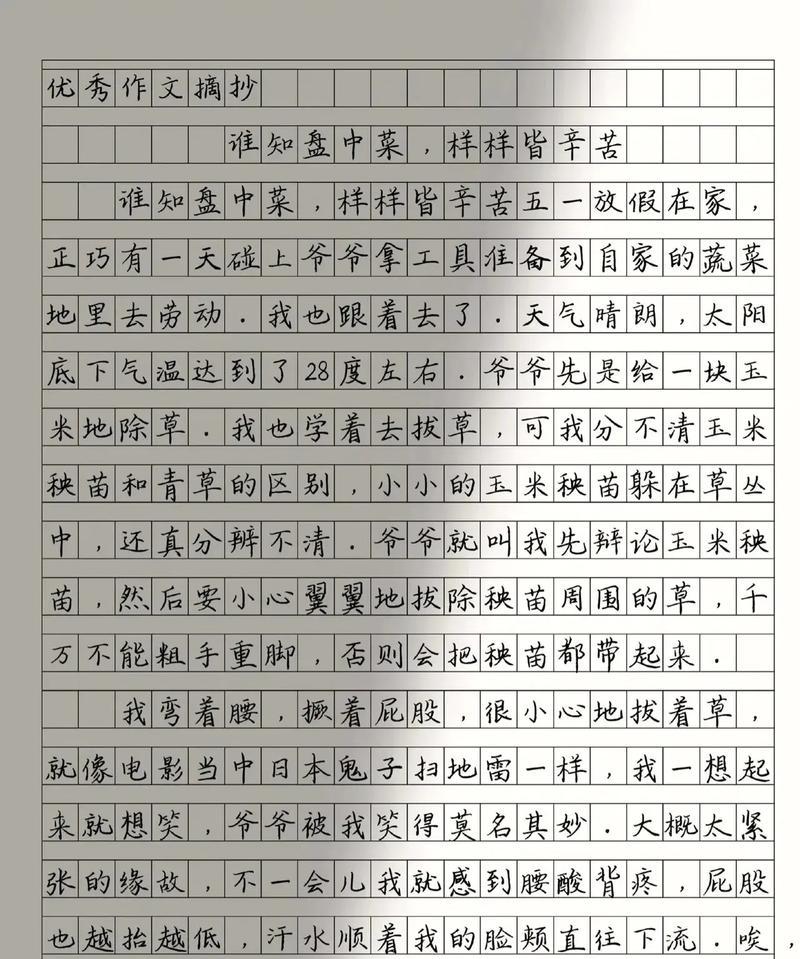 优秀作文摘抄
谁知盘中菜，样样皆辛苦
谁知盘中菜，样样皆辛苦五一放假在家，
正巧有一天碰上爷爷拿工具准备到自家的蔬菜
地里去劳动．我也跟着去了．天气晴朗，太阳
底下气温达到了28度左右．爷爷先是给一块玉
米地除草．我也学着去拔草，可我分不清玉米
秧苗和青草的区别，小小的玉米秧苗躲在草丛
中，还真分辨不清．爷爷就叫我先辩论玉米秧
苗，然后要小心翼翼地拔除秧苗周围的草，千
万不能粗手重脚，否则会把秧苗都带起来．
我弯着腰，撅着屁股，很小心地拔着草，
就像电影当中日本鬼子扫地雷一样，我一想起
来就想笑，爷爷被我笑得莫名其妙．大概太紧
张的缘故，不一会儿我就感到腰酸背疼，屁股
也越抬越低，汗水顺着我的脸颊直往下流．唉，